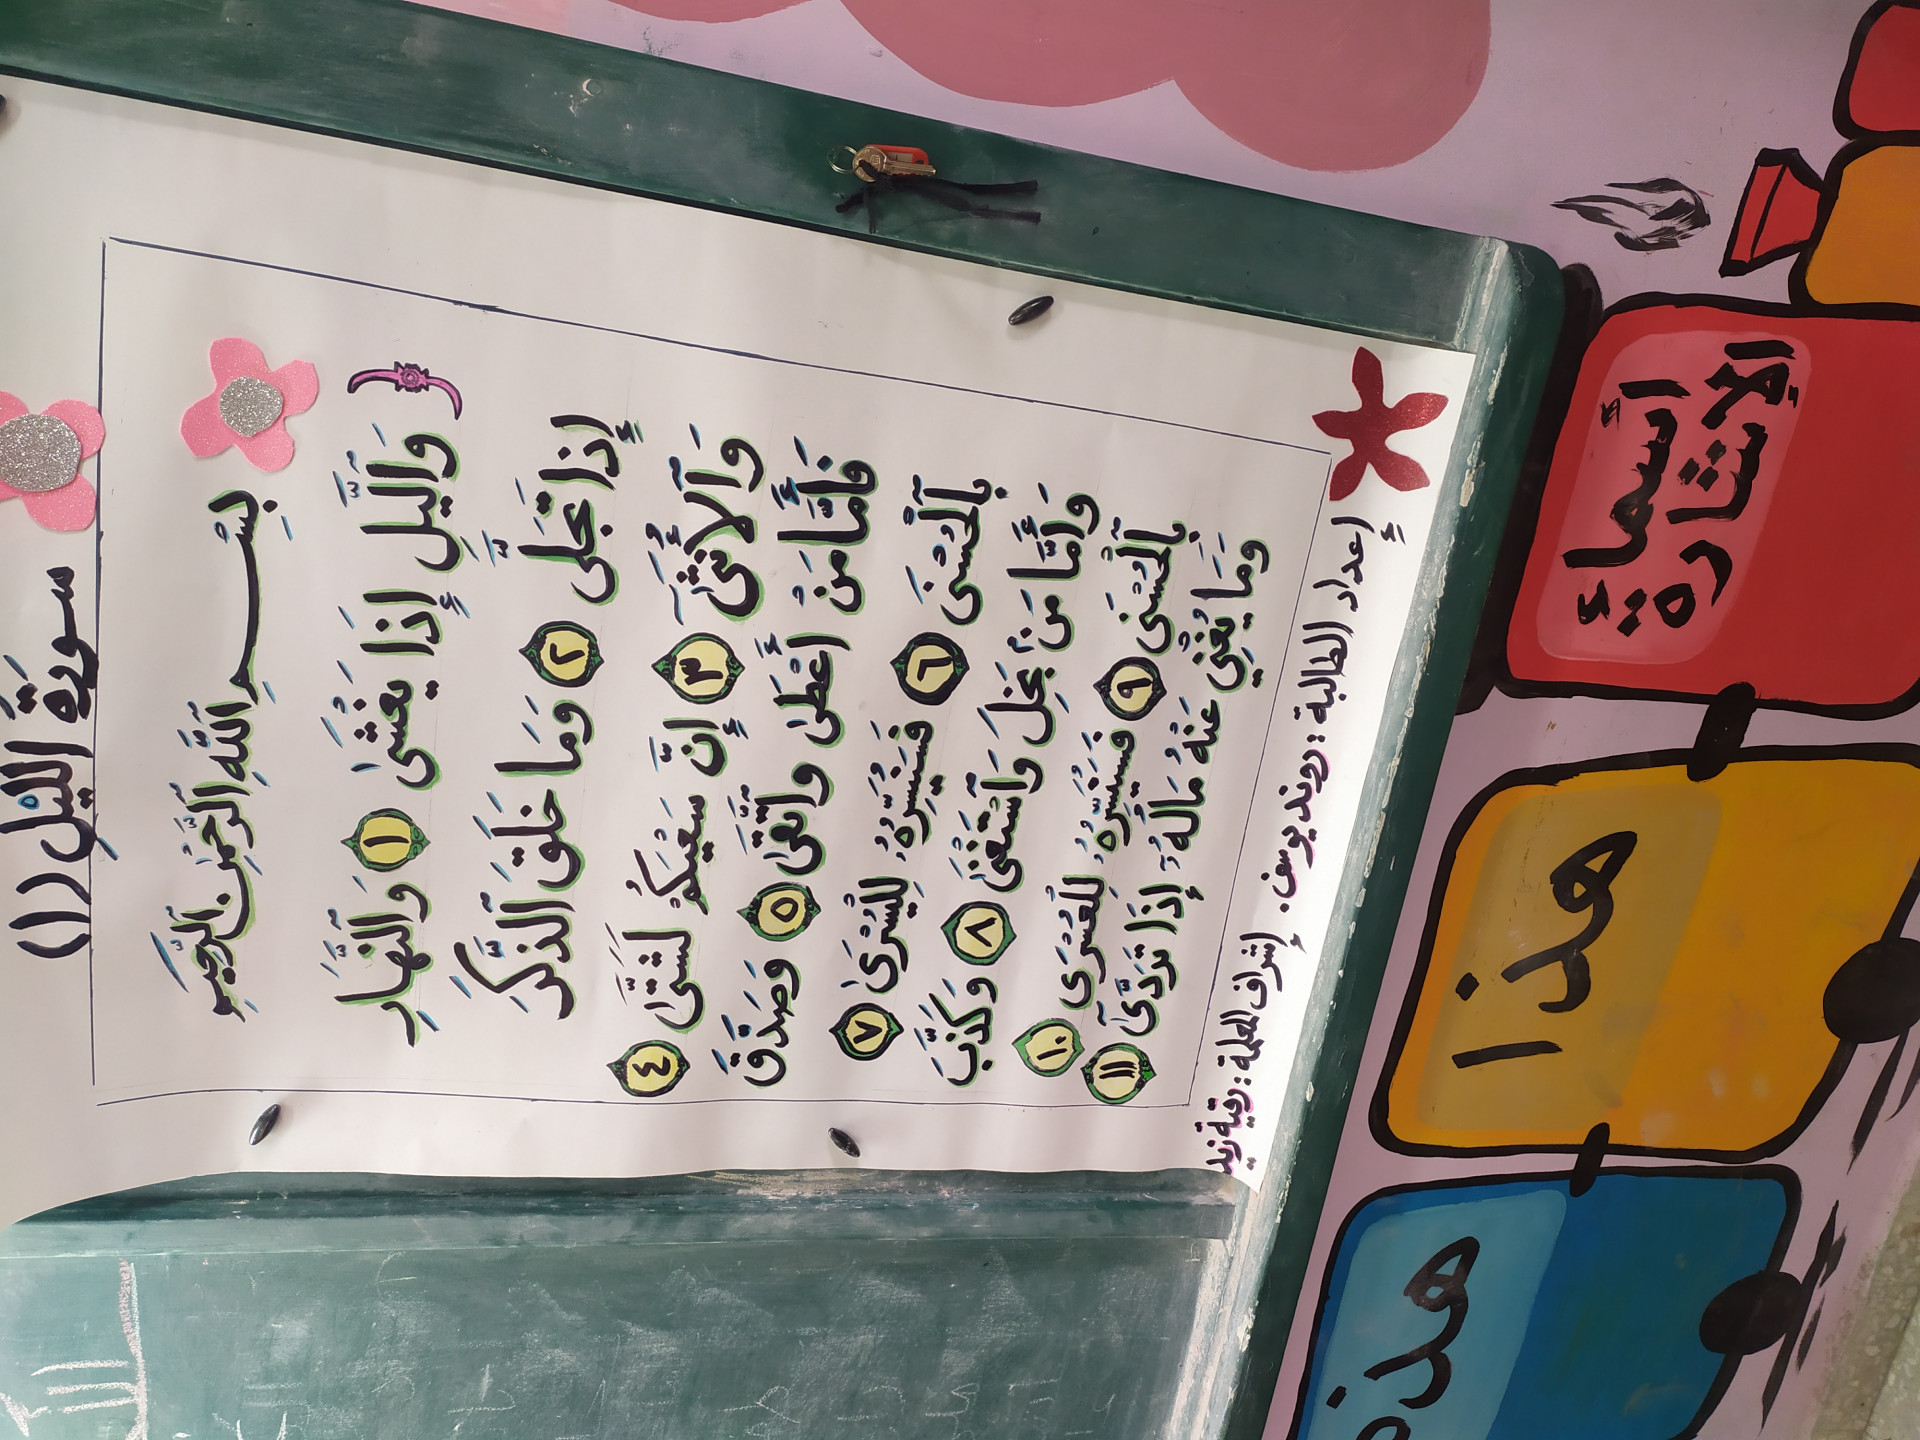 سورة الليل (١)
بِسْمِ اللَّهِ الرَّحْمَٰنِ الرَّحِيمِ
وَالَّيْلِ إِذَا يَغْشَىٰ ١ وَالنَّهَارِ
إِذَا تَجَلَّىٰ ٢ وَمَا خَلَقَ الذَّكَرَ
وَالْأُنثَىٰ ٣ إِنَّ سَعْيَكُمْ لَشَتَّىٰ ٤
فَأَمَّا مَنْ أَعْطَىٰ وَاتَّقَىٰ ٥ وَصَدَّقَ
بِالْحُسْنَىٰ ٦ فَسَنُيَسِّرُهُ لِلْيُسْرَىٰ ٧
وَأَمَّا مَنْ بَخِلَ وَاسْتَغْنَىٰ ٨ وَكَذَّبَ
بِالْحُسْنَىٰ ٩ فَسَنُيَسِّرُهُ لِلْعُسْرَىٰ ١٠
وَمَا يُغْنِي عَنْهُ مَالُهُ إِذَا تَرَدَّىٰ ١١
إعداد الطالبة: روند يوسف. إشراف المعلمة: رقية زيد
أسماء
الإشارة
هذا
هذه